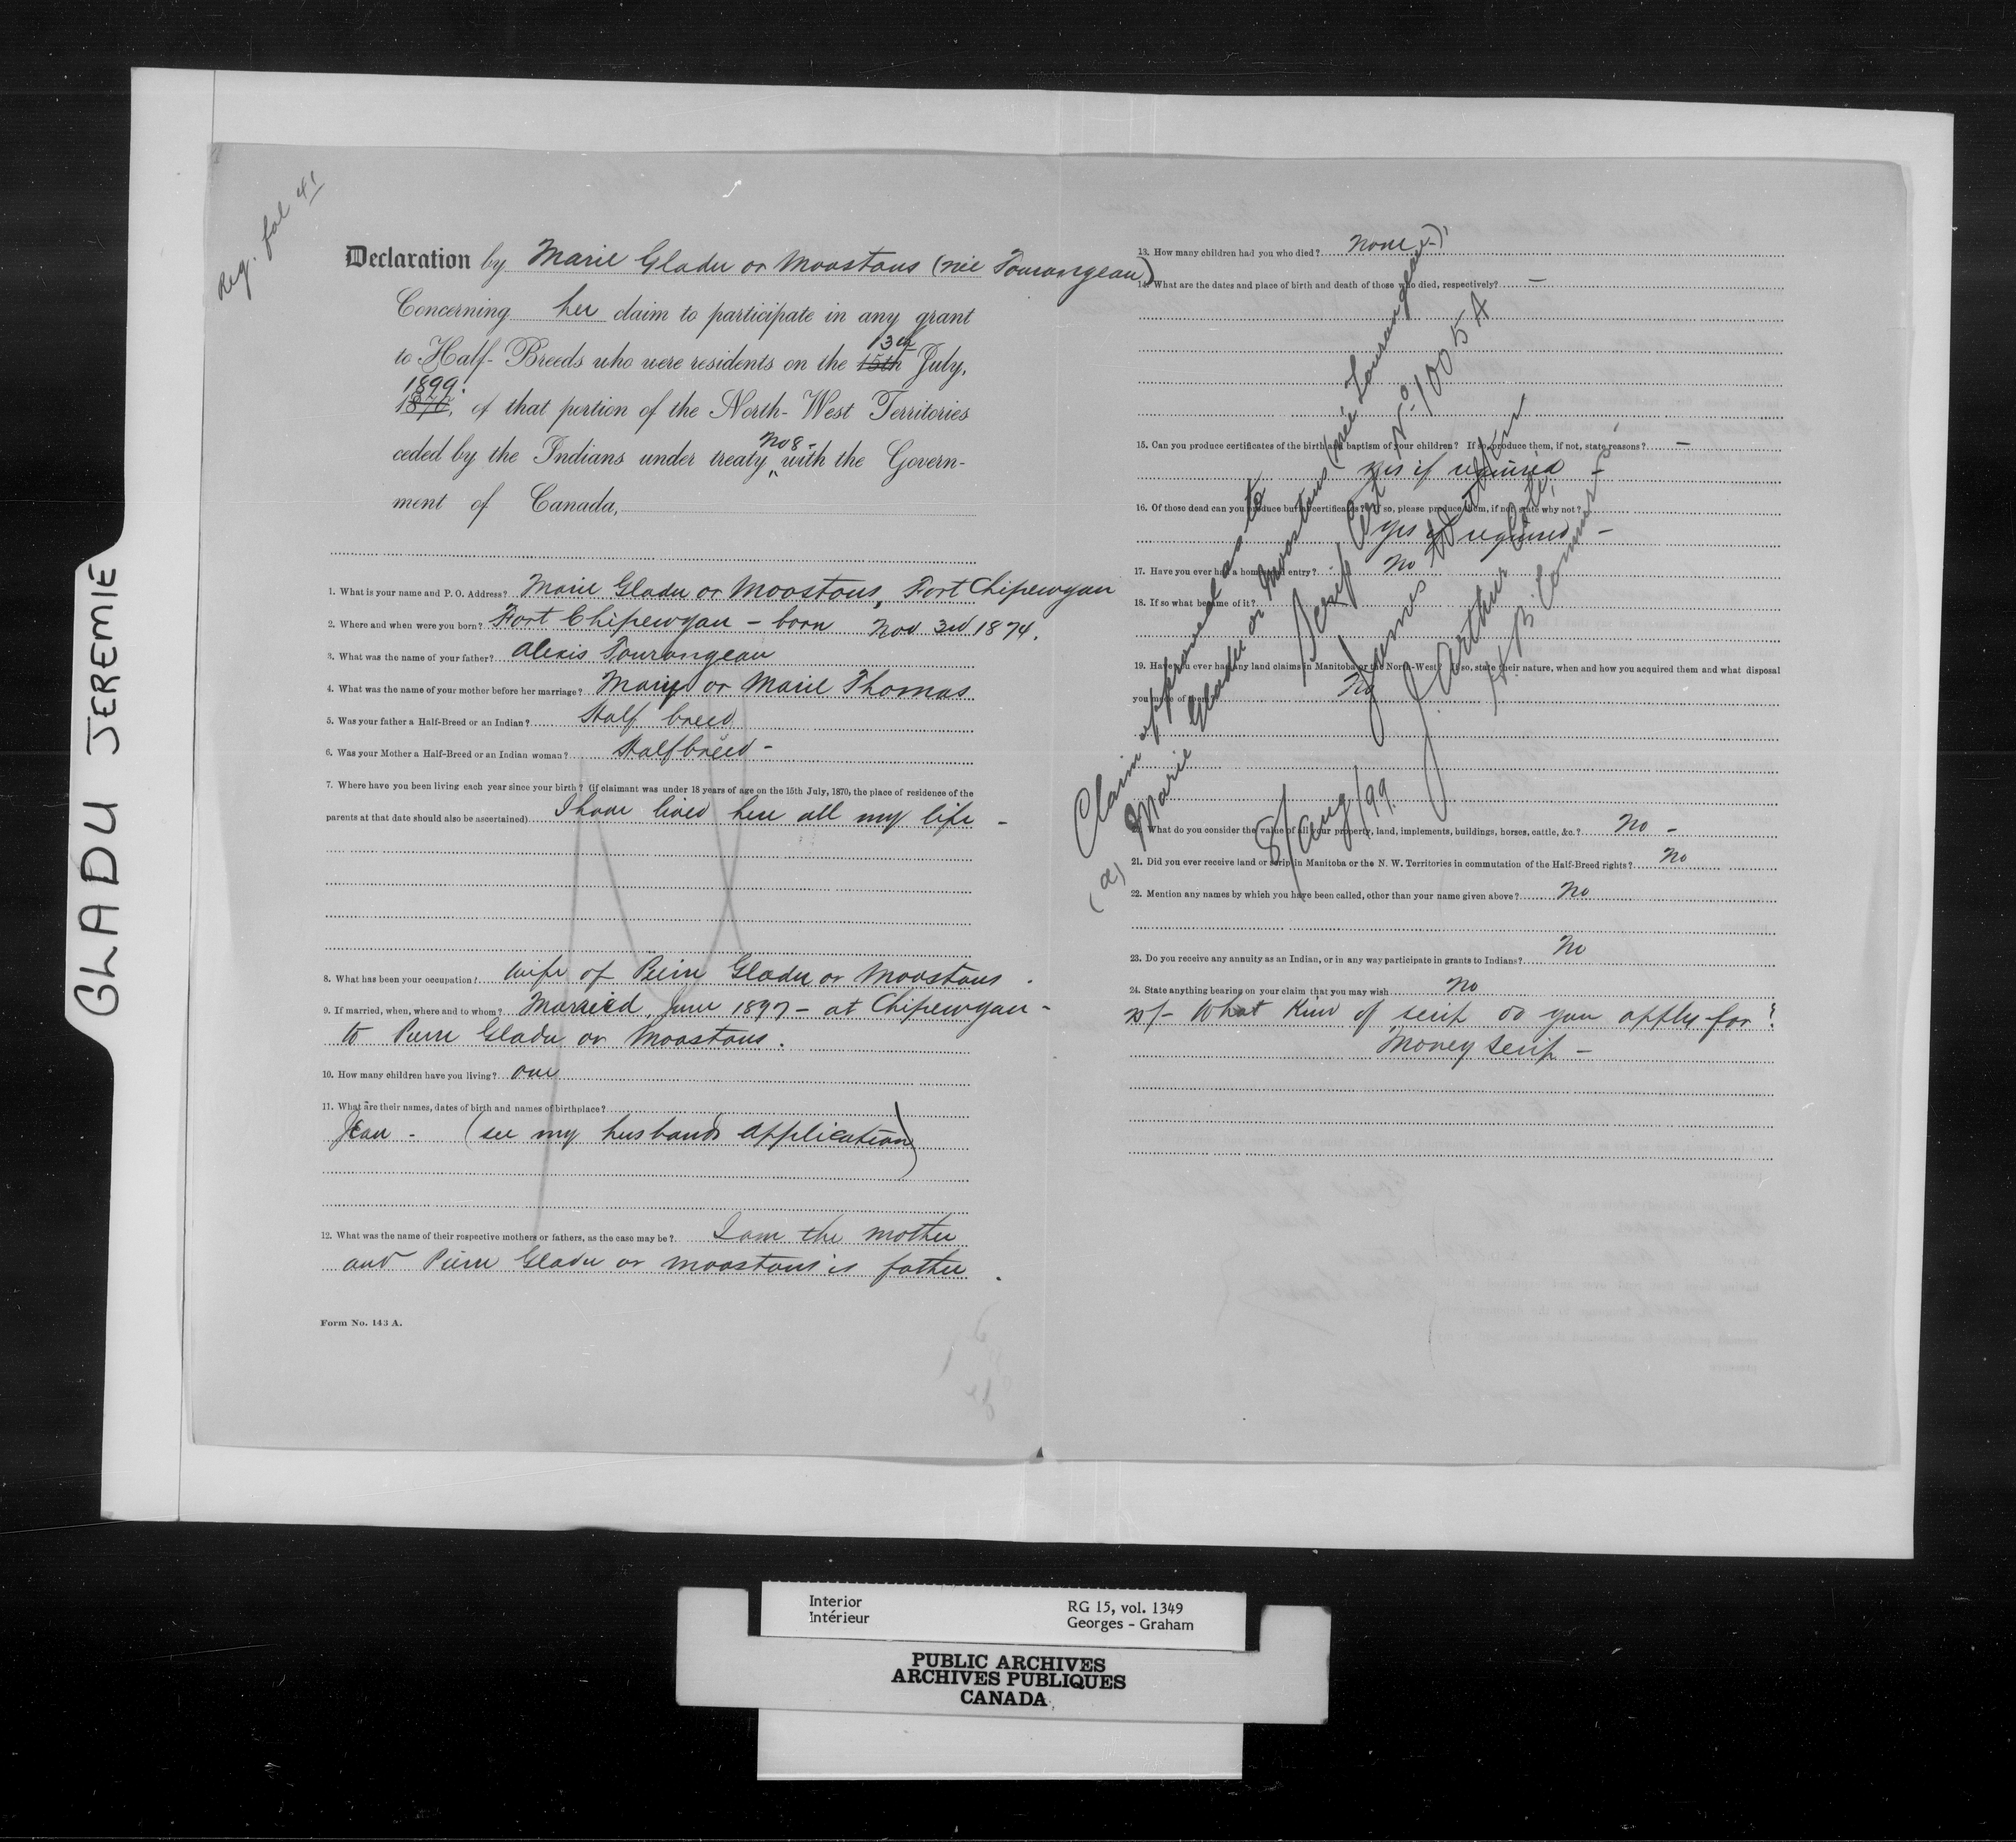 GLADU JEREMIE
Reg. fol 41
Declaration by Marie Gladu or Moostous (née Tourangeau)
Concerning her claim to participate in any grant
to Half-Breeds who were residents on the 15th 13th July,
1870, 1899 of that portion of the North-West Territories
ceded by the Indians under treaty No 8 with the Govern-
ment of Canada,
1. What is your name and P. O. Address? Marie Gladu or Moostous, Fort Chipewyan
2. Where and when were you born? Fort Chipewyan - born Nov 3rd 1874.
3. What was the name of your father? Alexis Tourangeau
4. What was the name of your mother before her marriage? Mary or Marie Thomas
5. Was your father a Half-Breed or an Indian? Half breed
6. Was your Mother a Half-Breed or an Indian woman? Halfbreed -
7. Where have you been living each year since your birth? (if claimant was under 18 years of age on the 15th July, 1870, the place of residence of the
parents at that date should also be ascertained) I have lived here all my life -
8. What has been your occupation? Wife of Pierre Gladu or Moostous.
9. If married, when, where and to whom? Married, June 1897 - at Chipewyan -
to Pierre Gladu or Moostous.
10. How many children have you living? one
11. What are their names, dates of birth and names of birthplace?
Jean - (see my husbands application)
12. What was the name of their respective mothers or fathers, as the case may be? I am the mother
and Pierre Gladu or Moostous is father.
Form No. 143 A.
13. How many children had you who died? None -
14. What are the dates and place of birth and death of those who died, respectively? -
15. Can you produce certificates of the birth and baptism of your children? If so, produce them, if not, state reasons? -
Yes if required -
16. Of those dead can you produce burial certificates? If so, please produce them, if not, state why not?
Yes if required -
17. Have you ever had a homestead entry? No
18. If so what became of it?
19. Have you ever had any land claims in Manitoba or the North-West? If so, state their nature, when and how you acquired them and what disposal
you made of them? No
20. What do you consider the value of all your property, land, implements, buildings, horses, cattle, &c.? No -
21. Did you ever receive land or scrip in Manitoba or the N. W. Territories in commutation of the Half-Breed rights? No
22. Mention any names by which you have been called, other than your name given above? No
23. Do you receive any annuity as an Indian, or in any way participate in grants to Indians? No
24. State anything bearing on your claim that you may wish No
25/- What kind of scrip do you apply for?
Money Scrip -
Claim approved as to
(a) Marie Gladu or Moostous (née Tourangeau)
Scrip Cert No 1005 A
James Walker
J. Arthur Coté,
H. B. Commrs.
8/Aug/99.
Interior
Intérieur
RG 15, vol. 1349
Georges - Graham
PUBLIC ARCHIVES
ARCHIVES PUBLIQUES
CANADA